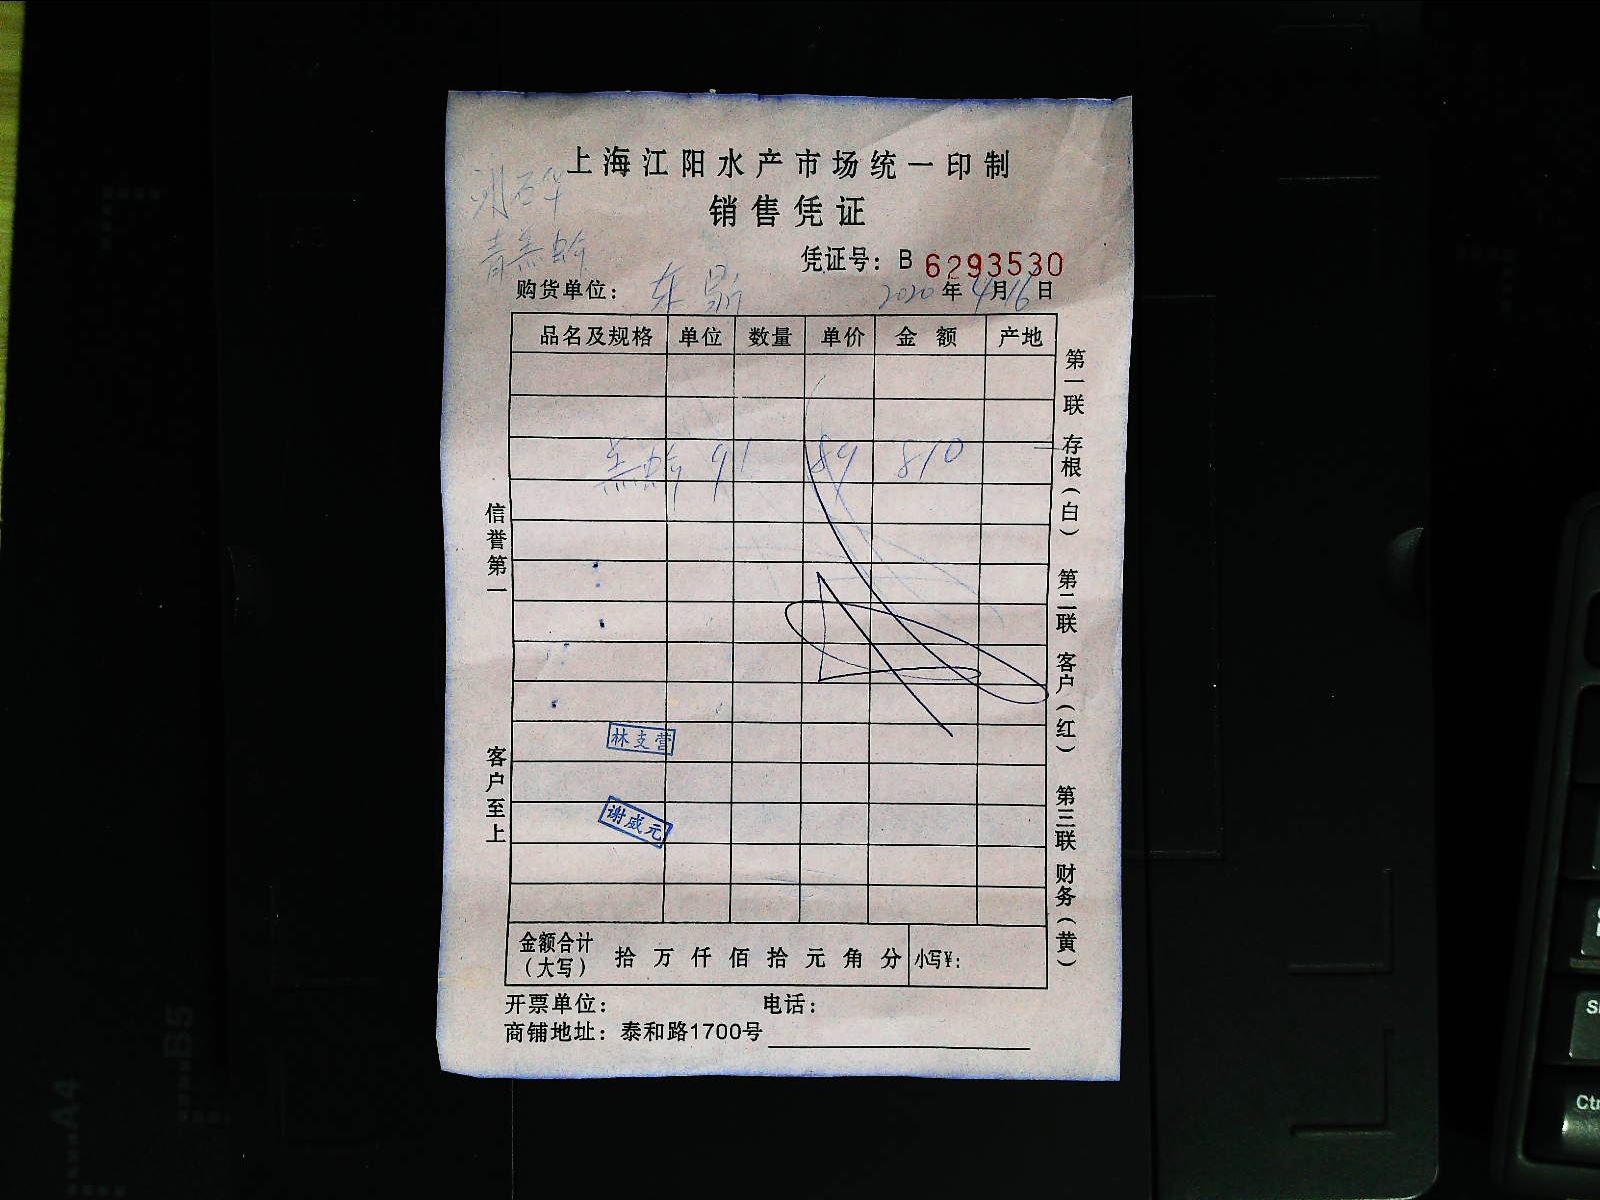 上海江阳水产市场统一印制
销售凭证
凭证号：B 6293530
购货单位：东鼎 2020年4月16日
品名及规格 单位 数量 单价 金额 产地
91 89 810
林支营
谢威元
金额合计（大写） 拾万仟佰拾元角分 小写¥：
开票单位： 电话：
商铺地址：泰和路1700号
信誉第一 客户至上
第一联 存根（白） 第二联 客户（红） 第三联 财务（黄）
A4
B5
Ctr